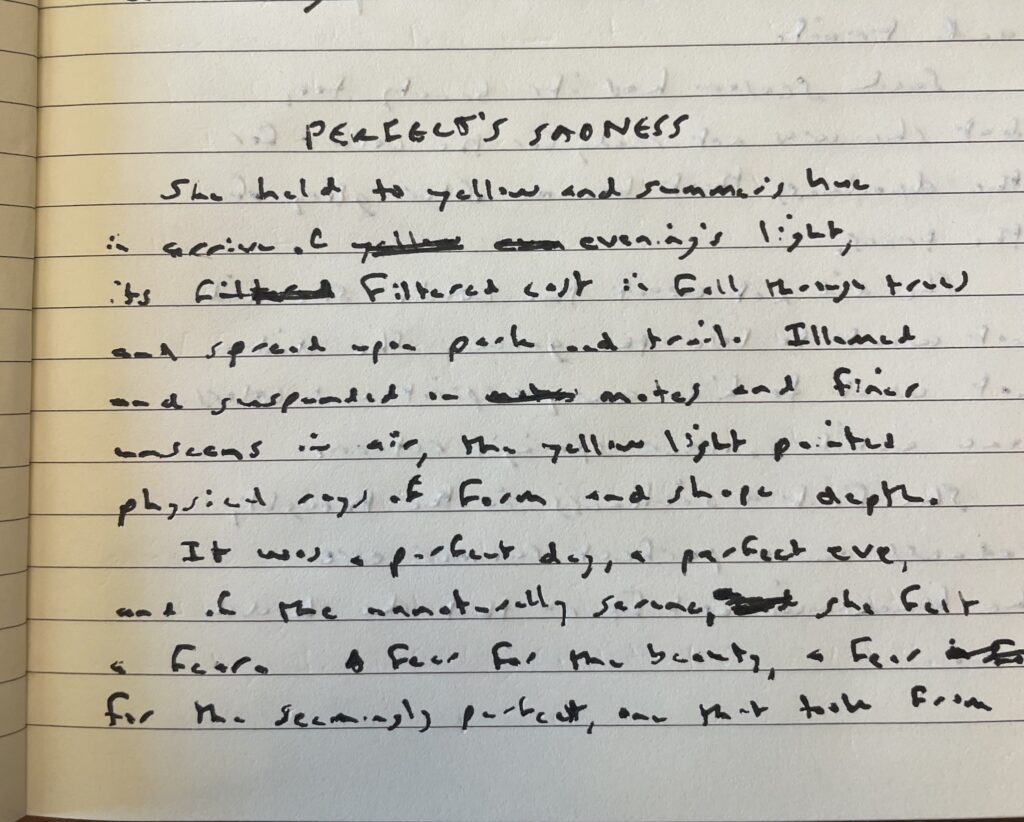 PERFECT'S SADNESS
She held to yellow and summer's hue
in arrive of evening's light,
its filtered cast in fall through trees
and spread upon park and trail. Illumed
and suspended on motes and finer
unseens in air, the yellow light painted
physical rays of form and shape depth.
It was a perfect day, a perfect eve,
and of the unnaturally serene, she felt
a fear. A fear for the beauty, a fear
for the seemingly perfect, one that took from